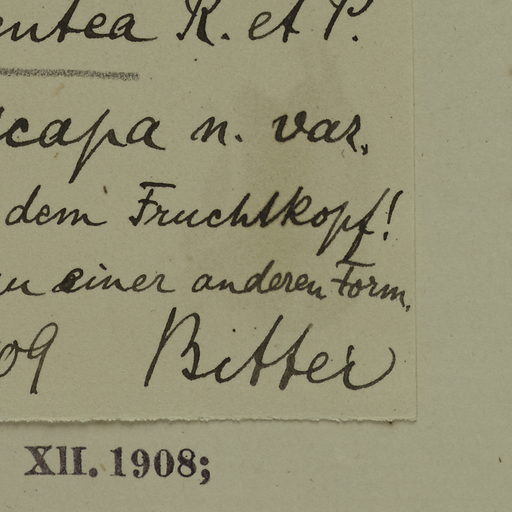 entea R. et P.
scapa n. var.
dem Fruchtkopf!
zu einer anderen Form.
09 Bitter
XII. 1908;